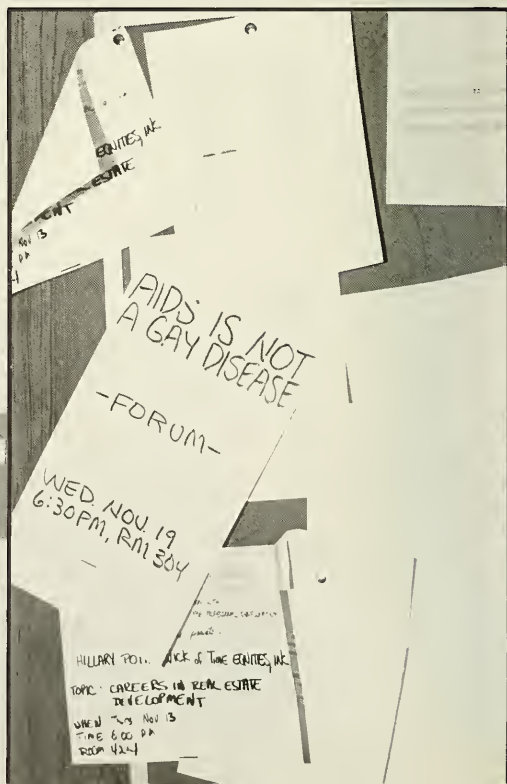 EQUITES, INC
ESTATE
MENT
Nov 13
PM
4
AIDS IS NOT
A GAY DISEASE
-FORUM-
WED. NOV. 19
6:30PM, RM 304
HILLARY
NICK of TIME EQUITES, INC
TOPIC: CAREERS IN REAL ESTATE
DEVELOPMENT
WHEN Nov 13
TIME 6:00 PM
ROOM 424